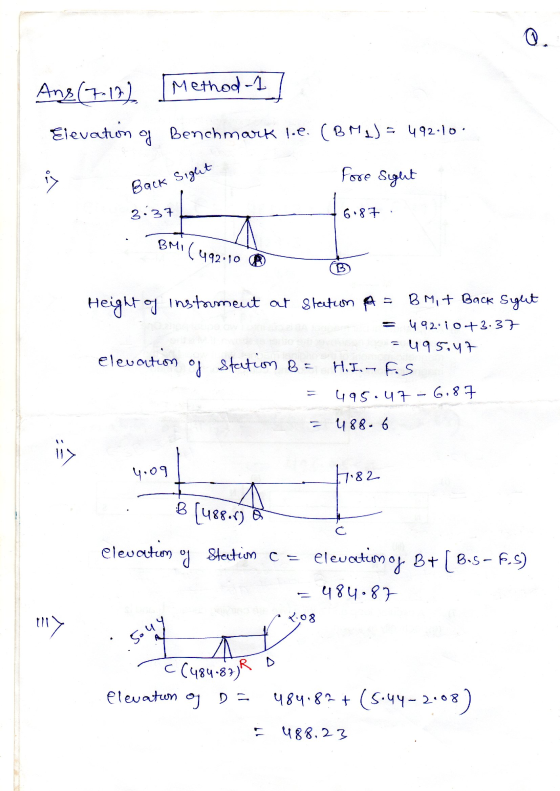 ①.
Ans(7.17) Method-1
Elevation of Benchmark i.e. (BM1) = 492.10.
i>
Back Sight Fore Sight
3.37 6.87
BM1 (492.10 Ⓟ Ⓑ
Height of instrument at Station P = BM1 + Back Sight
= 492.10+3.37
= 495.47
elevation of Station B = H.I. - F.S
= 495.47 - 6.87
= 488.6
ii>
4.09 7.82
B [488.6) Q
C
elevation of Station C = elevation of B + [B.S - F.S)
= 484.87
iii>
5.44 2.08
C (484.87) R D
elevation of D = 484.87 + (5.44 - 2.08)
= 488.23